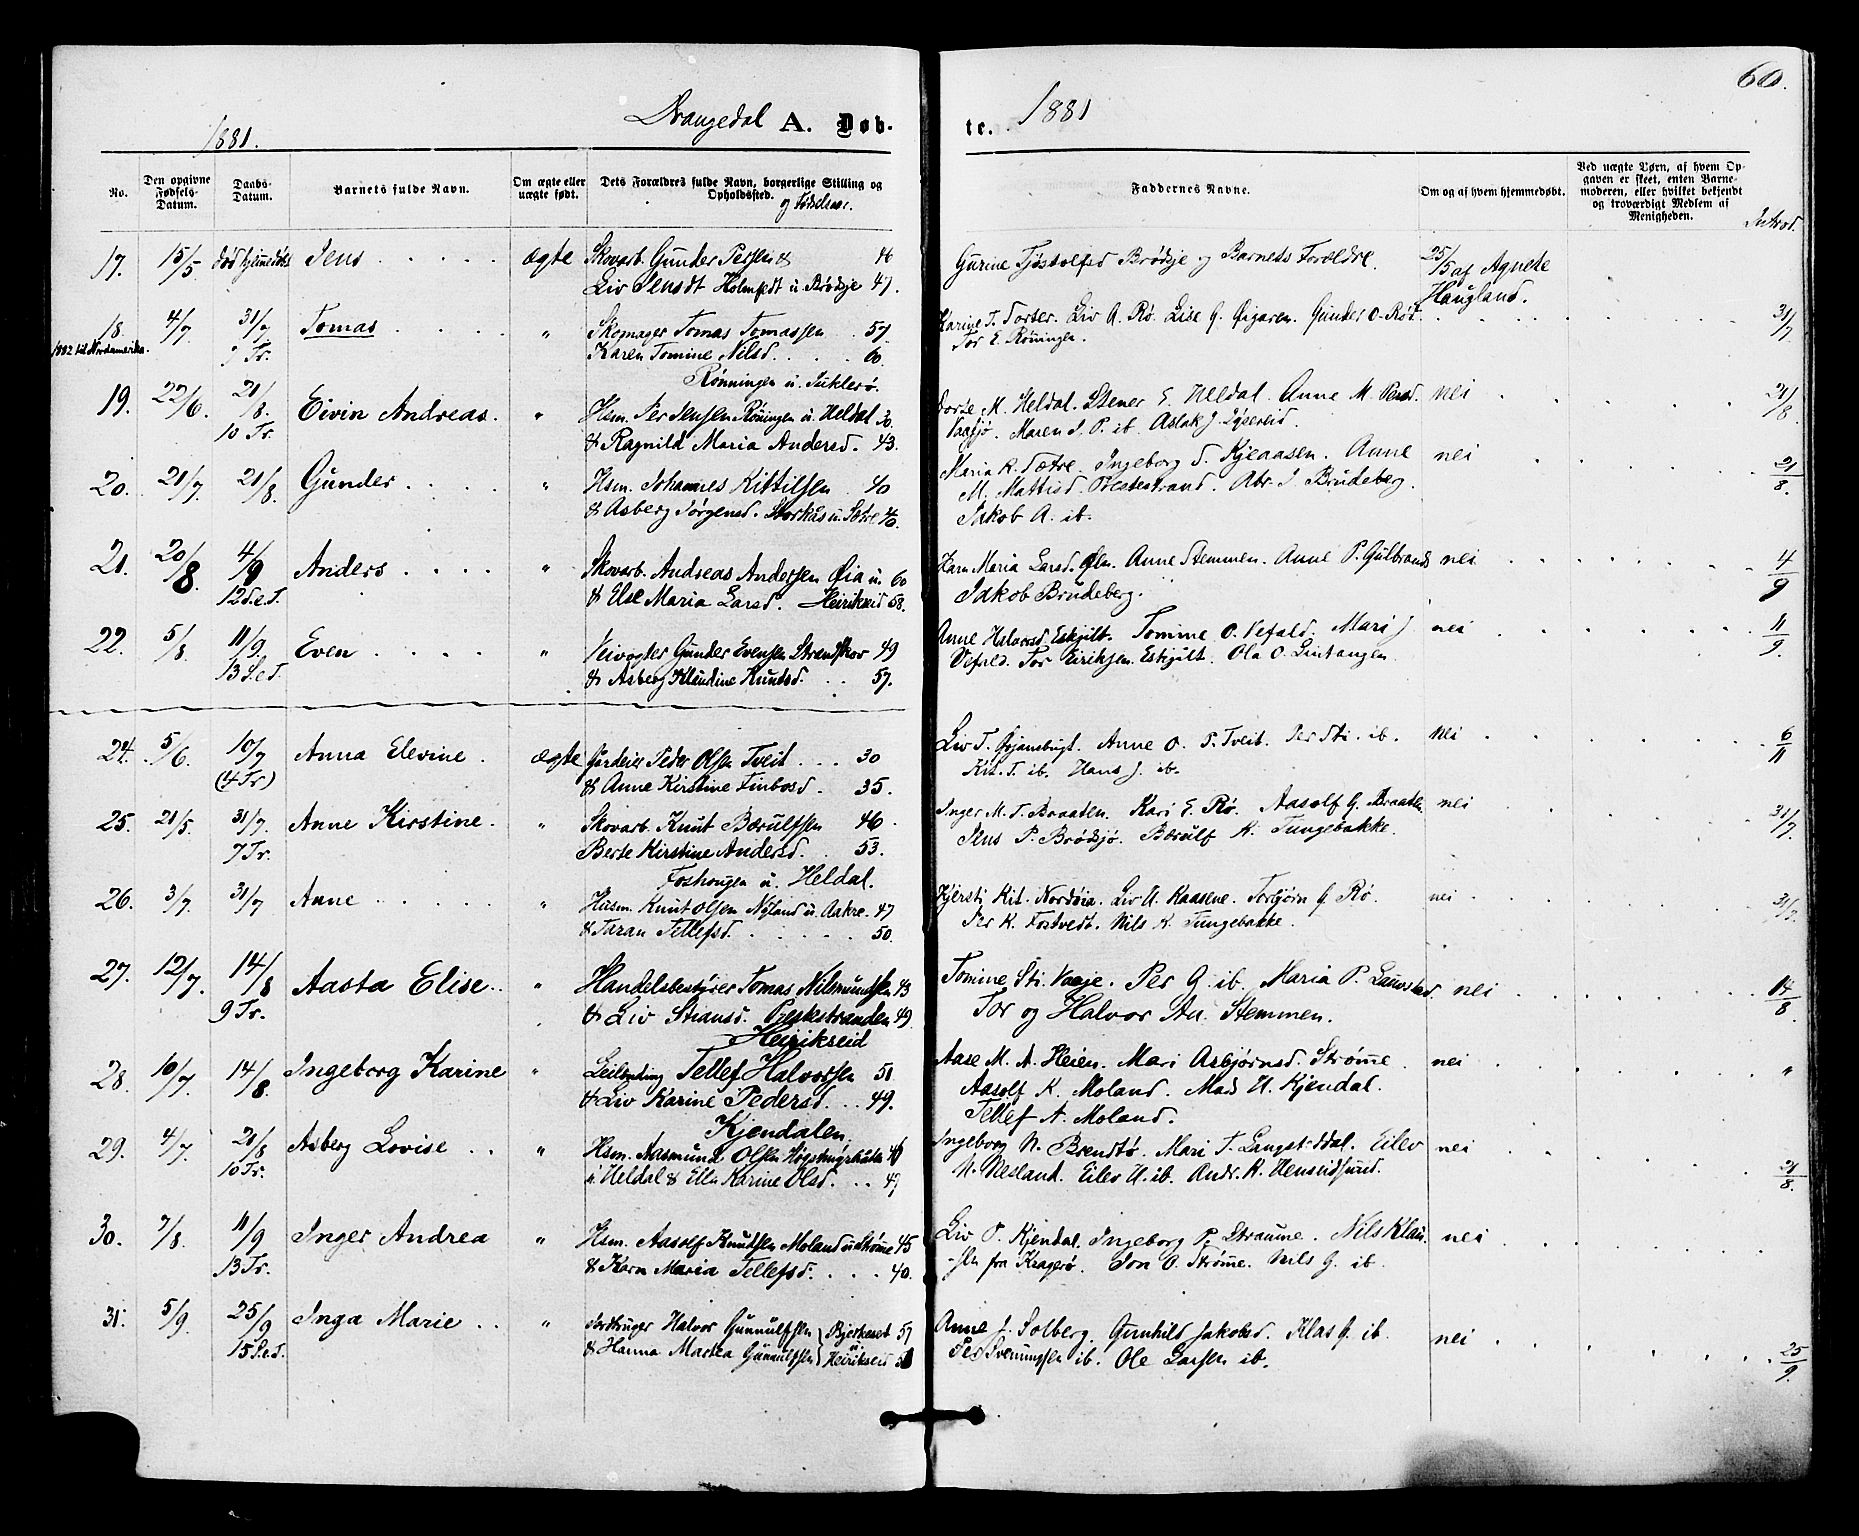 60.
Drangedal A. Døb-
te. 1881
1881.
No.
Den opgivne Fødsels-Datum.
Daabs-Datum.
Barnets fulde Navn.
Om ægte eller uægte født.
Dets Forældres fulde Navn, borgerlige Stilling og Opholdssted.
og Fødselsaar.
Faddernes Navne.
Om og af hvem hjemmedøbt.
Ved uægte Børn, af hvem Opgaven er skeet, enten Barnemoderen, eller hvilket bekjendt og troværdigt Medlem af Menigheden.
Introd.
17. 15/5 død hjemmedøbt Jens ægte Skovarb. Gunder Persen & 46
Liv Jensdt Holmfedt u. Brødsje 47.
Gurine Tjøstolfsd Brødsje og Barnets Forældre. 25/5 af Agnete
Haugland.
18. 4/7 31/7 Tomas " Skomager Tomas Tomassen 57
1882 til Nordamerika. 7 Tr. Karen Tomine Nilsd. 60
Rønningen u.
Karine T. Liv A. Rø. Lise G. Øigaren. Gunder O. 31/7
Tor E. Röningen.
19. 22/6. 21/8. Eivin Andreas. " Hsm. Per Jensen Röningen u. Heldal 30.
10 Tr. & Ragnild Maria Andersd. 43.
M. Heldal. Stener E. Heldal. Anne M. nei 21/8
Maren J. P. ib. Aslak J.
20. 21/7. 21/8. Gunder " Hsm. Johannes Kittilsen 40
& Asberg Jørgensd. Storkås u. Sætre 46.
Maria K. Sætre. Ingeborg S. Kjeaasen. Anne nei 21/8.
M. Mattisd. Prestestrand. Abr. J Brudeberg.
Jakob A. ib.
21. 20/8. 4/9 Anders " Skovarb. Andreas Andersen Øia u. 60
12 S.e.T. & Else Maria Larsd. Heirikseid 58.
Karn Maria Larsd. Øen. Anne Stemmen. Anne P. Gulbrands nei 4/9
Jakob Brudeberg.
22. 5/8. 11/9. Even " Veivogter Gunder Evensen Strandskov 49
13 S.e.T. & Asberg Klaudine Knutsd. 57.
Anne Halvorsd. Eskjilt. Tomine O. Vefald. Mari J nei 11/9.
Vefald. Tor Eiriksen. Eskjilt. Ola O. Lintangen.
24. 5/6. 10/7 Anna Elevine. ægte Gårdeier Peder Olsen Tveit 30
(4 Tr) & Anne Kirstine Finbosd. 35.
Liv T. Anne O. T. Tveit. Per Sti. ib. nei 6/11
Kit. T. ib. Hans J. ib.
25. 21/5. 31/7. Anne Kirstine. " Skovarb. Knut Bærulfsen 46
7 Tr. Berte Kirstine Andersd. 53.
Foshougen u. Heldal.
Inger M. T. Braaten. Kari E. Rø. Aasolf G. Braaten nei 31/7
Jens P. Brødsjø. Bærulf K. Tungebakke.
26. 3/7. 31/7 Anne " Husm. Knut Olsen Nyland u. Aakre. 47
& Taran Tellefsd. 50.
Kjersti Kit. Nordøia. Liv A. Kaasene. Torbjørn G. Rø. nei 31/7.
Per K. Fostvedt. Nils K. Tungebakke.
27. 12/7. 14/8 Aasta Elise. " Handelsbestyrer Tomas Nilsmundsen 43
9 Tr. & Liv Straxsd. Prestestranden 49.
Heirikseid
Tomine Sti. Vaaje. Per G. ib. Maria P. nei 14/8
Tor og Halvor An. Stemmen.
28. 16/7. 14/8. Ingeborg Karine " Leilending Tellef Halvorsen 51
& Liv Karine Pedersd. 49.
Kjendalen.
Aase M. A. Heien. Mari Asbjørnsd. Strømme. nei "
Aasolf K. Moland. Mads H. Kjendal.
Tellef A. Moland.
29. 4/7. 21/8 Asberg Lovise " Hsm. Aasmund Olsen 46
10 Tr. u Heldal & Ellen Karine Olsd. 47
Ingeborg N. Brendtø. Mari T. Eilev nei 21/8.
N. Nesland. Eilev H. ib. Andr. K. Henseidsund.
30. 7/8. 11/9 Inger Andrea " Hsm. Aasolf Knutsen Moland u Strømme 45
13 Tr. & Karn Maria Tellefsd. 40.
Liv P. Kjendal. Ingeborg P. Straume. Nils Klau- nei
-sen fra Kragerø. Jon O. Strømme. Nils G. ib.
31. 5/9. 25/9 Inga Marie " Jordbruger Halvor Gunnulfsen Bjerkeset 57
15 S.e.T. & Hanna Martea Gunnulfsen u Heirikseid
Anne J. Solberg. Gunhild Jakobsd. Klas G. ib. nei 25/9.
Per Svenungsen ib. Ole Larsen ib.